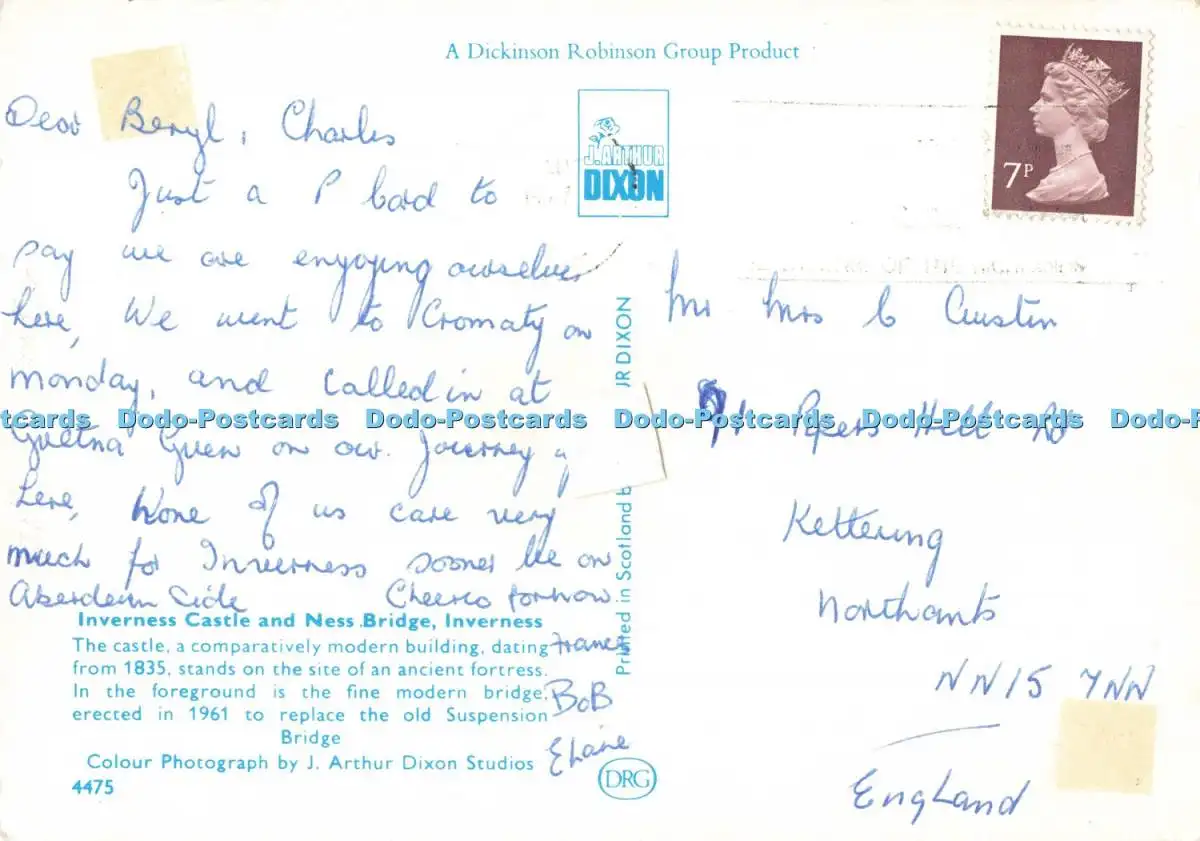 A Dickinson Robinson Group Product
J. ARTHUR
DIXON
7P
Dear Beryl, Charles
Just a P Card to
say we are enyoying ourselves
here, We went to Cromaty on
monday, and called in at
Gretna Green on our Journey
here, None of us care very
much for Inverness sooner be on
Aberdeen Side Cheerio for now.
Frances
BoB
Elaine
Inverness Castle and Ness Bridge, Inverness
The castle, a comparatively modern building, dating
from 1835, stands on the site of an ancient fortress.
In the foreground is the fine modern bridge,
erected in 1961 to replace the old Suspension
Bridge
Colour Photograph by J. Arthur Dixon Studios
4475
Printed in Scotland b
UR DIXON
DRG
Mr Mrs C Austin
Pipers Hill Rd
Kettering
Northants
NN15 7NW
England
tcards Dodo-Postcards Dodo-Postcards Dodo-Postcards Dodo-Postcards Dodo-P